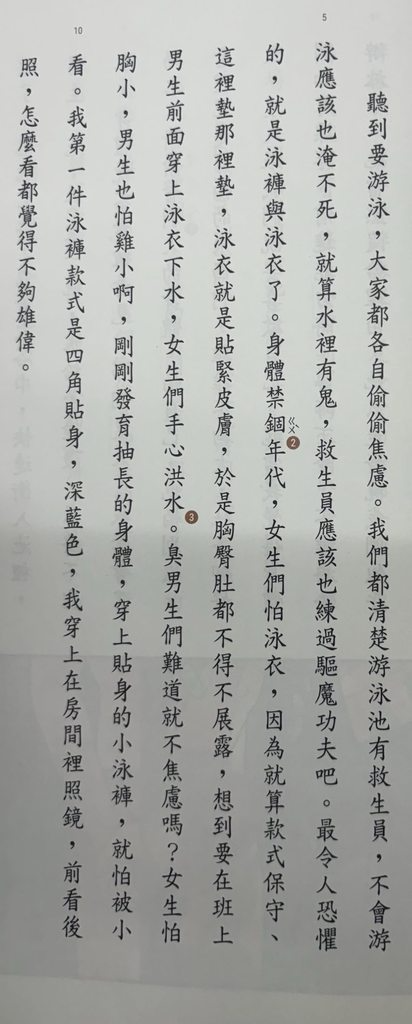 5
10
聽到要游泳，大家都各自偷偷焦慮。我們都清楚游泳池有救生員，不會游
泳應該也淹不死，就算水裡有鬼，救生員應該也練過驅魔功夫吧。最令人恐懼
的，就是泳褲與泳衣了。身體禁錮ㄍㄨˋ❷年代，女生們怕泳衣，因為就算款式保守、
這裡墊那裡墊，泳衣就是貼緊皮膚，於是胸臀肚都不得不展露，想到要在班上
男生前面穿上泳衣下水，女生們手心洪水❸。臭男生們難道就不焦慮嗎？女生怕
胸小，男生也怕雞小啊，剛剛發育抽長的身體，穿上貼身的小泳褲，就怕被小
看。我第一件泳褲款式是四角貼身，深藍色，我穿上在房間裡照鏡，前看後
照，怎麼看都覺得不夠雄偉。